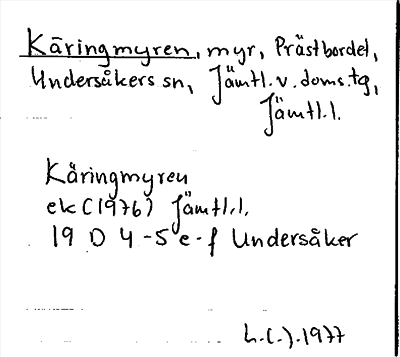 Käringmyren, myr, Prästbordet,
Undersåkers sn, Jämtl. v. doms. tg,
Jämtl. l.
Käringmyren
ek (1976) Jämtl. l.
19 D 4-5 e-f Undersåker
1977